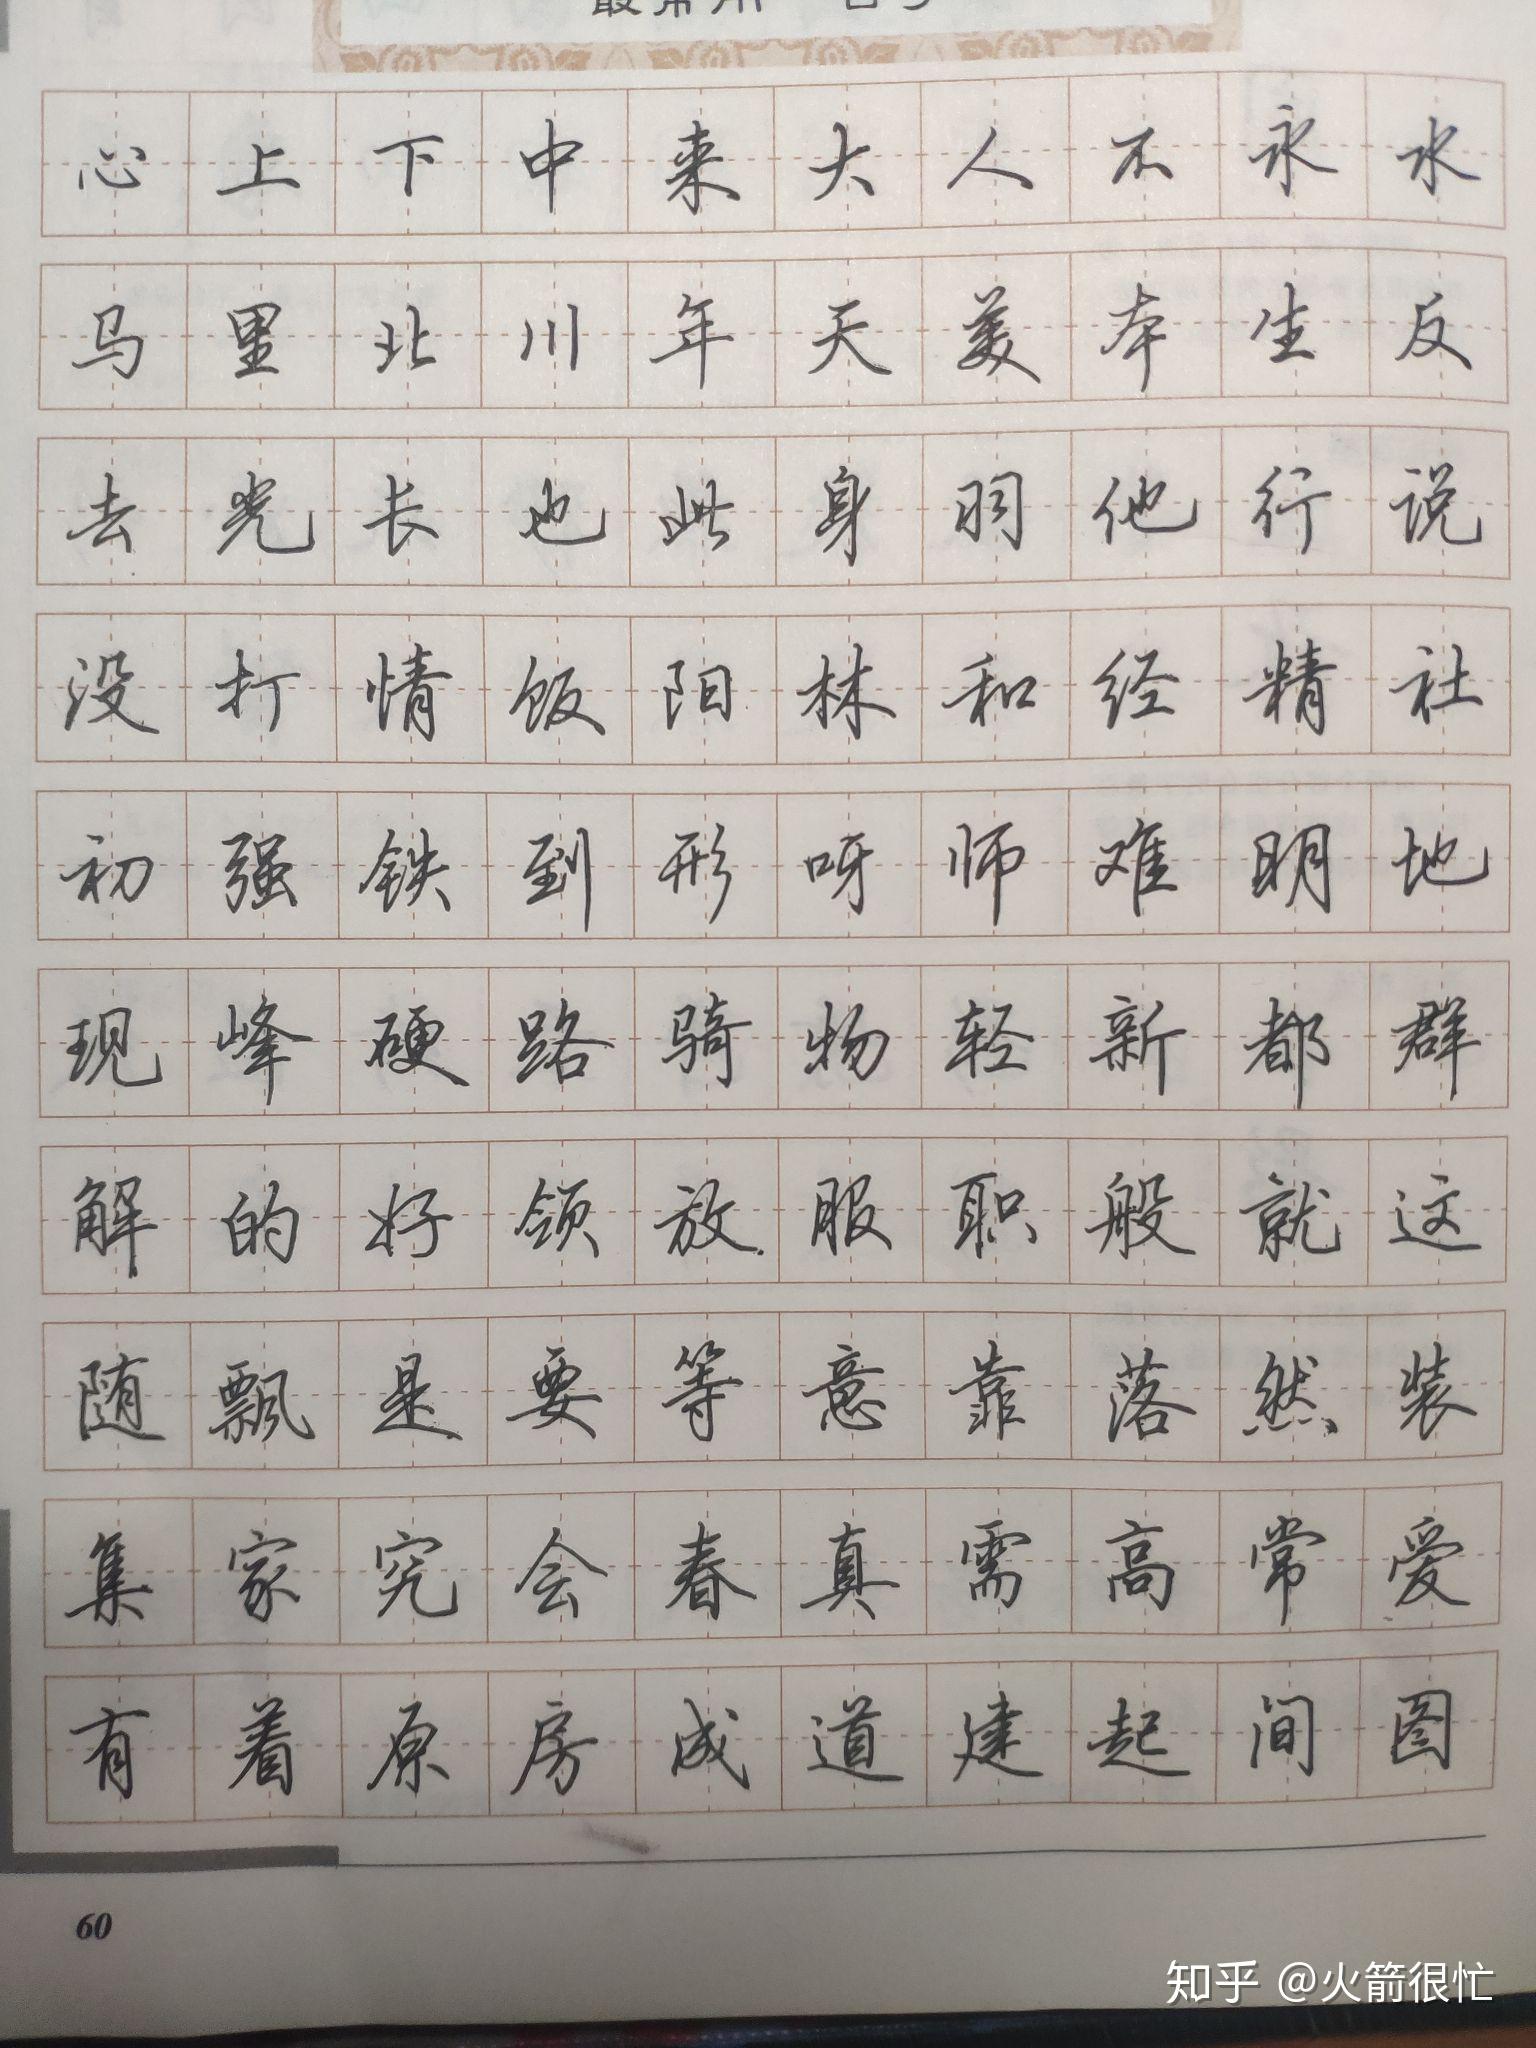 心上下中来大人不永水
马里北川年天美本生反
去光长也此身羽他行说
没打情饭阳林和经精社
初强铁到形呀师难明地
现峰硬路骑物轻新都群
解的好领放服职般就这
随飘是要等意靠落然装
集家究会春真需高常爱
有着原房成道建起间图
60
知乎 @火箭很忙